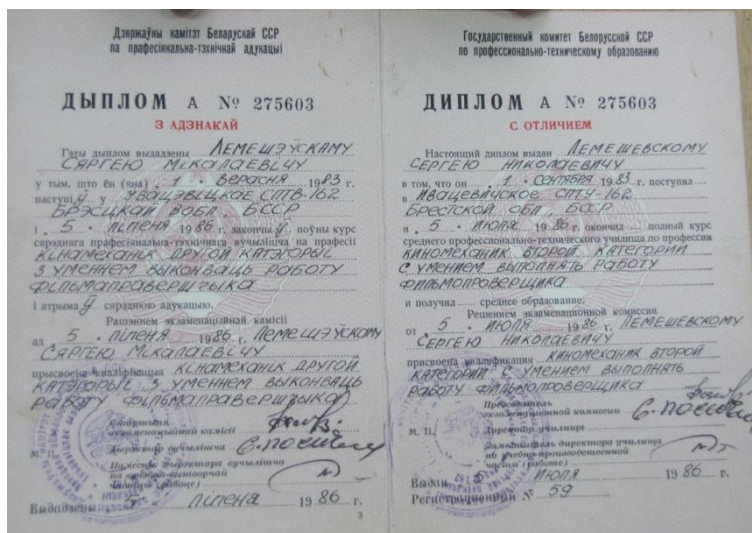 Дзяржаўны камітэт Беларускай ССР
па прафесіянальна-тэхнічнай адукацыі
ДЫПЛОМ А № 275603
З АДЗНАКАЙ
Гэты дыплом выдадзены Лемешэўскаму
Сяргею Мікалаевічу
у тым, што ён (яна) 1 верасня 1983 г.
паступіў у Івацэвіцкае СПТВ-162
Брэсцкай вобл. БССР
і 5 ліпеня 1986 г. закончыў поўны курс
сярэдняга прафесіянальна-тэхнічнага вучылішча па прафесіі
кінамеханік другой катэгорыі
з уменнем выконваць работу
фільмаправершчыка
і атрымаў сярэднюю адукацыю.
Рашэннем экзаменацыйнай камісіі
ад 5 ліпеня 1986 г. Лемешэўскаму
Сяргею Мікалаевічу
прысвоена кваліфікацыя кінамеханік другой
катэгорыі з уменнем выконваць
работу фільмаправершчыка
Старшыня
экзаменацыйнай камісіі
Дырэктар вучылішча
М. П.
Намеснік дырэктара вучылішча
па вучэбна-вытворчай
рабоце
Выдадзены 5 ліпеня 1986 г.
Государственный комитет Белорусской ССР
по профессионально-техническому образованию
ДИПЛОМ А № 275603
С ОТЛИЧИЕМ
Настоящий диплом выдан Лемешевскому
Сергею Николаевичу
в том, что он 1 сентября 1983 г. поступил
в Ивацевичское СПТУ-162
Брестской обл., БССР
и 5 июля 1986 г. окончил полный курс
среднего профессионально-технического училища по профессии
киномеханик второй категории
с умением выполнять работу
фильмопроверщика
и получил среднее образование.
Решением экзаменационной комиссии
от 5 июля 1986 г. Лемешевскому
Сергею Николаевичу
присвоена квалификация киномеханик второй
категории с умением выполнять
работу фильмопроверщика
Председатель
экзаменационной комиссии
М. П. Директор училища
Заместитель директора училища
по учебно-производственной
части (работе)
Выдан 5 июля 1986 г.
Регистрационный № 59